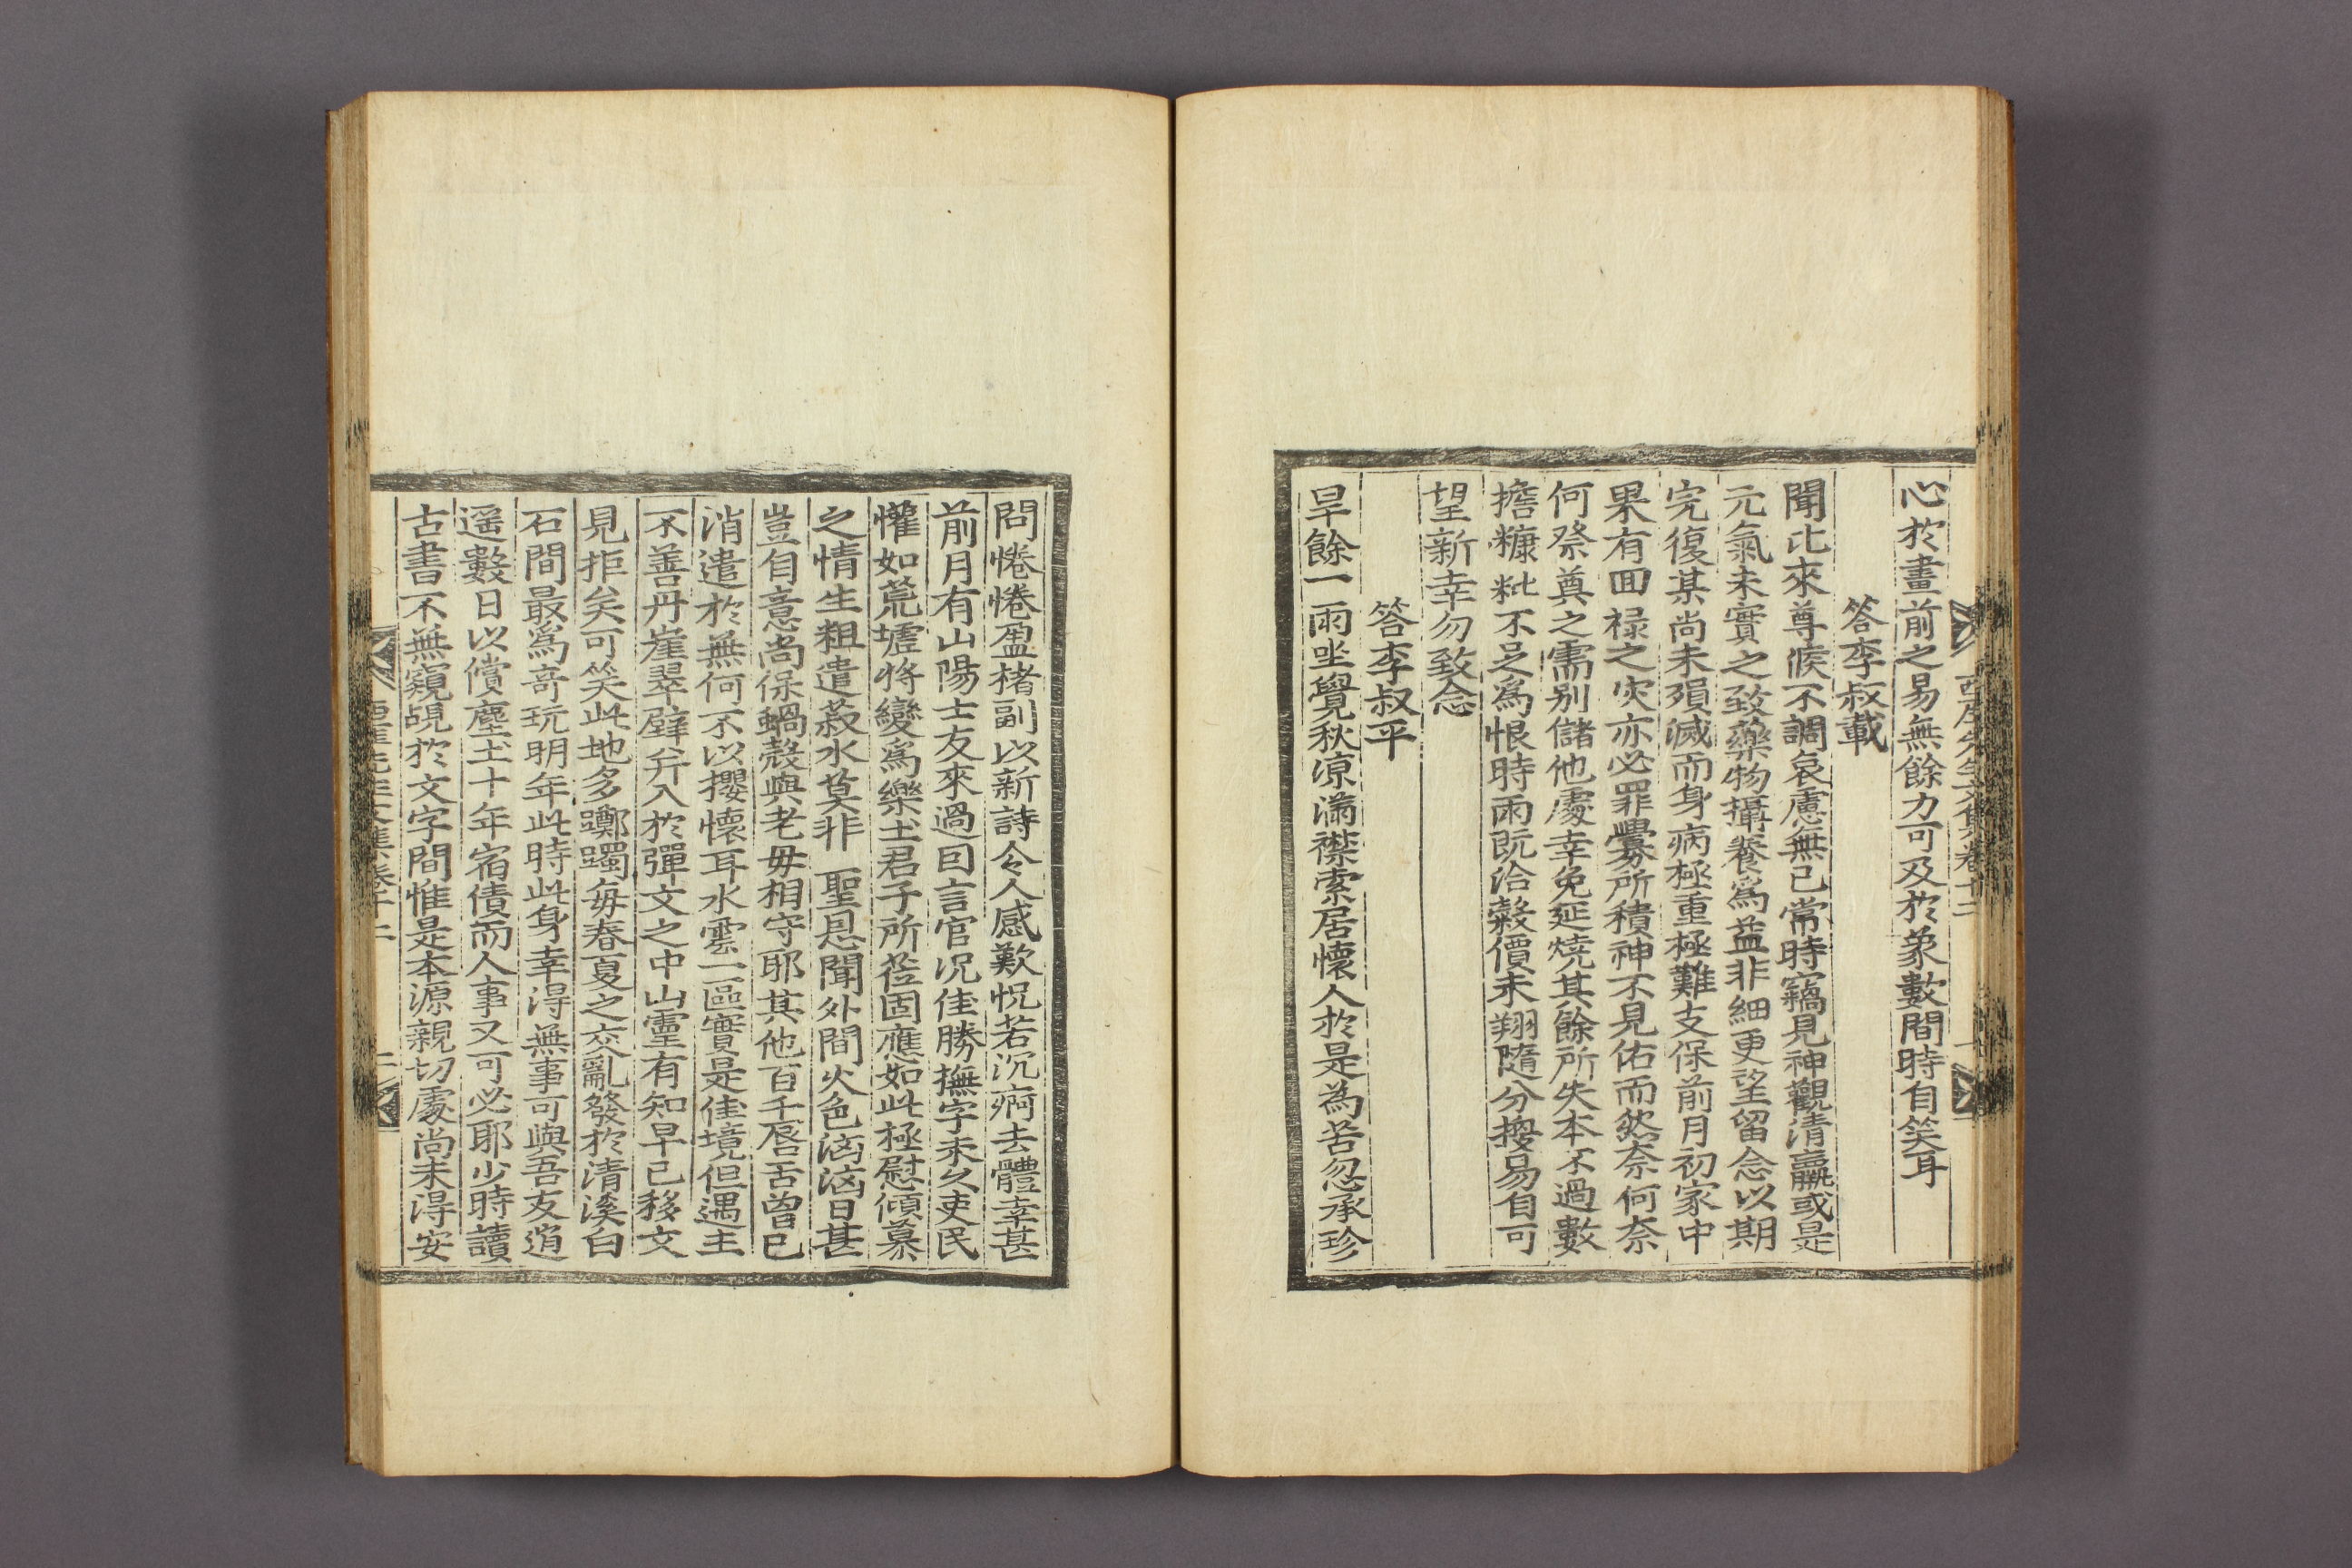 心於畫前之易無餘力可及於象數間時自笑耳
答李叔載
聞比來尊候不調哀慮無已常時竊見神觀清羸或是
元氣未實之致藥物攝養爲益非細更望留念以期
完復某尚未殞滅而身病極重極難支保前月初家中
果有回祿之灾亦必罪釁所積神不見佑而然奈何奈
何祭奠之需別儲他處幸免延燒其餘所失本不過數
擔糠粃不足爲恨時雨旣洽穀價未翔隨分擾易自可
望新幸勿致念
答李叔平
旱餘一雨坐覺秋凉滿襟索居懷人於是為苦忽承珍
問惓惓盈楮副以新詩令人感歎怳若沉痾去體幸甚
前月有山陽士友來過回言官况佳勝撫字未久吏民
懽如荒墟將變爲樂土君子所莅固應如此極慰傾慕
之情生粗遣菽水莫非 聖恩聞外間火色洶洶日甚
豈自意尚保蝸殼與老母相守耶其他百千唇舌曾已
消遣於無何不以攖懷耳水雲一區實是佳境但遇主
不善丹崖翠壁幷入於彈文之中山靈有知早已移文
見拒矣可笑此地多躑躅每春夏之交亂發於清溪白
石間最爲奇玩明年此時此身幸得無事可與吾友逍
遥數日以償塵土十年宿債而人事又可必耶少時讀
古書不無窺覘於文字間惟是本源親切處尚未得安
西厓先生文集卷十二